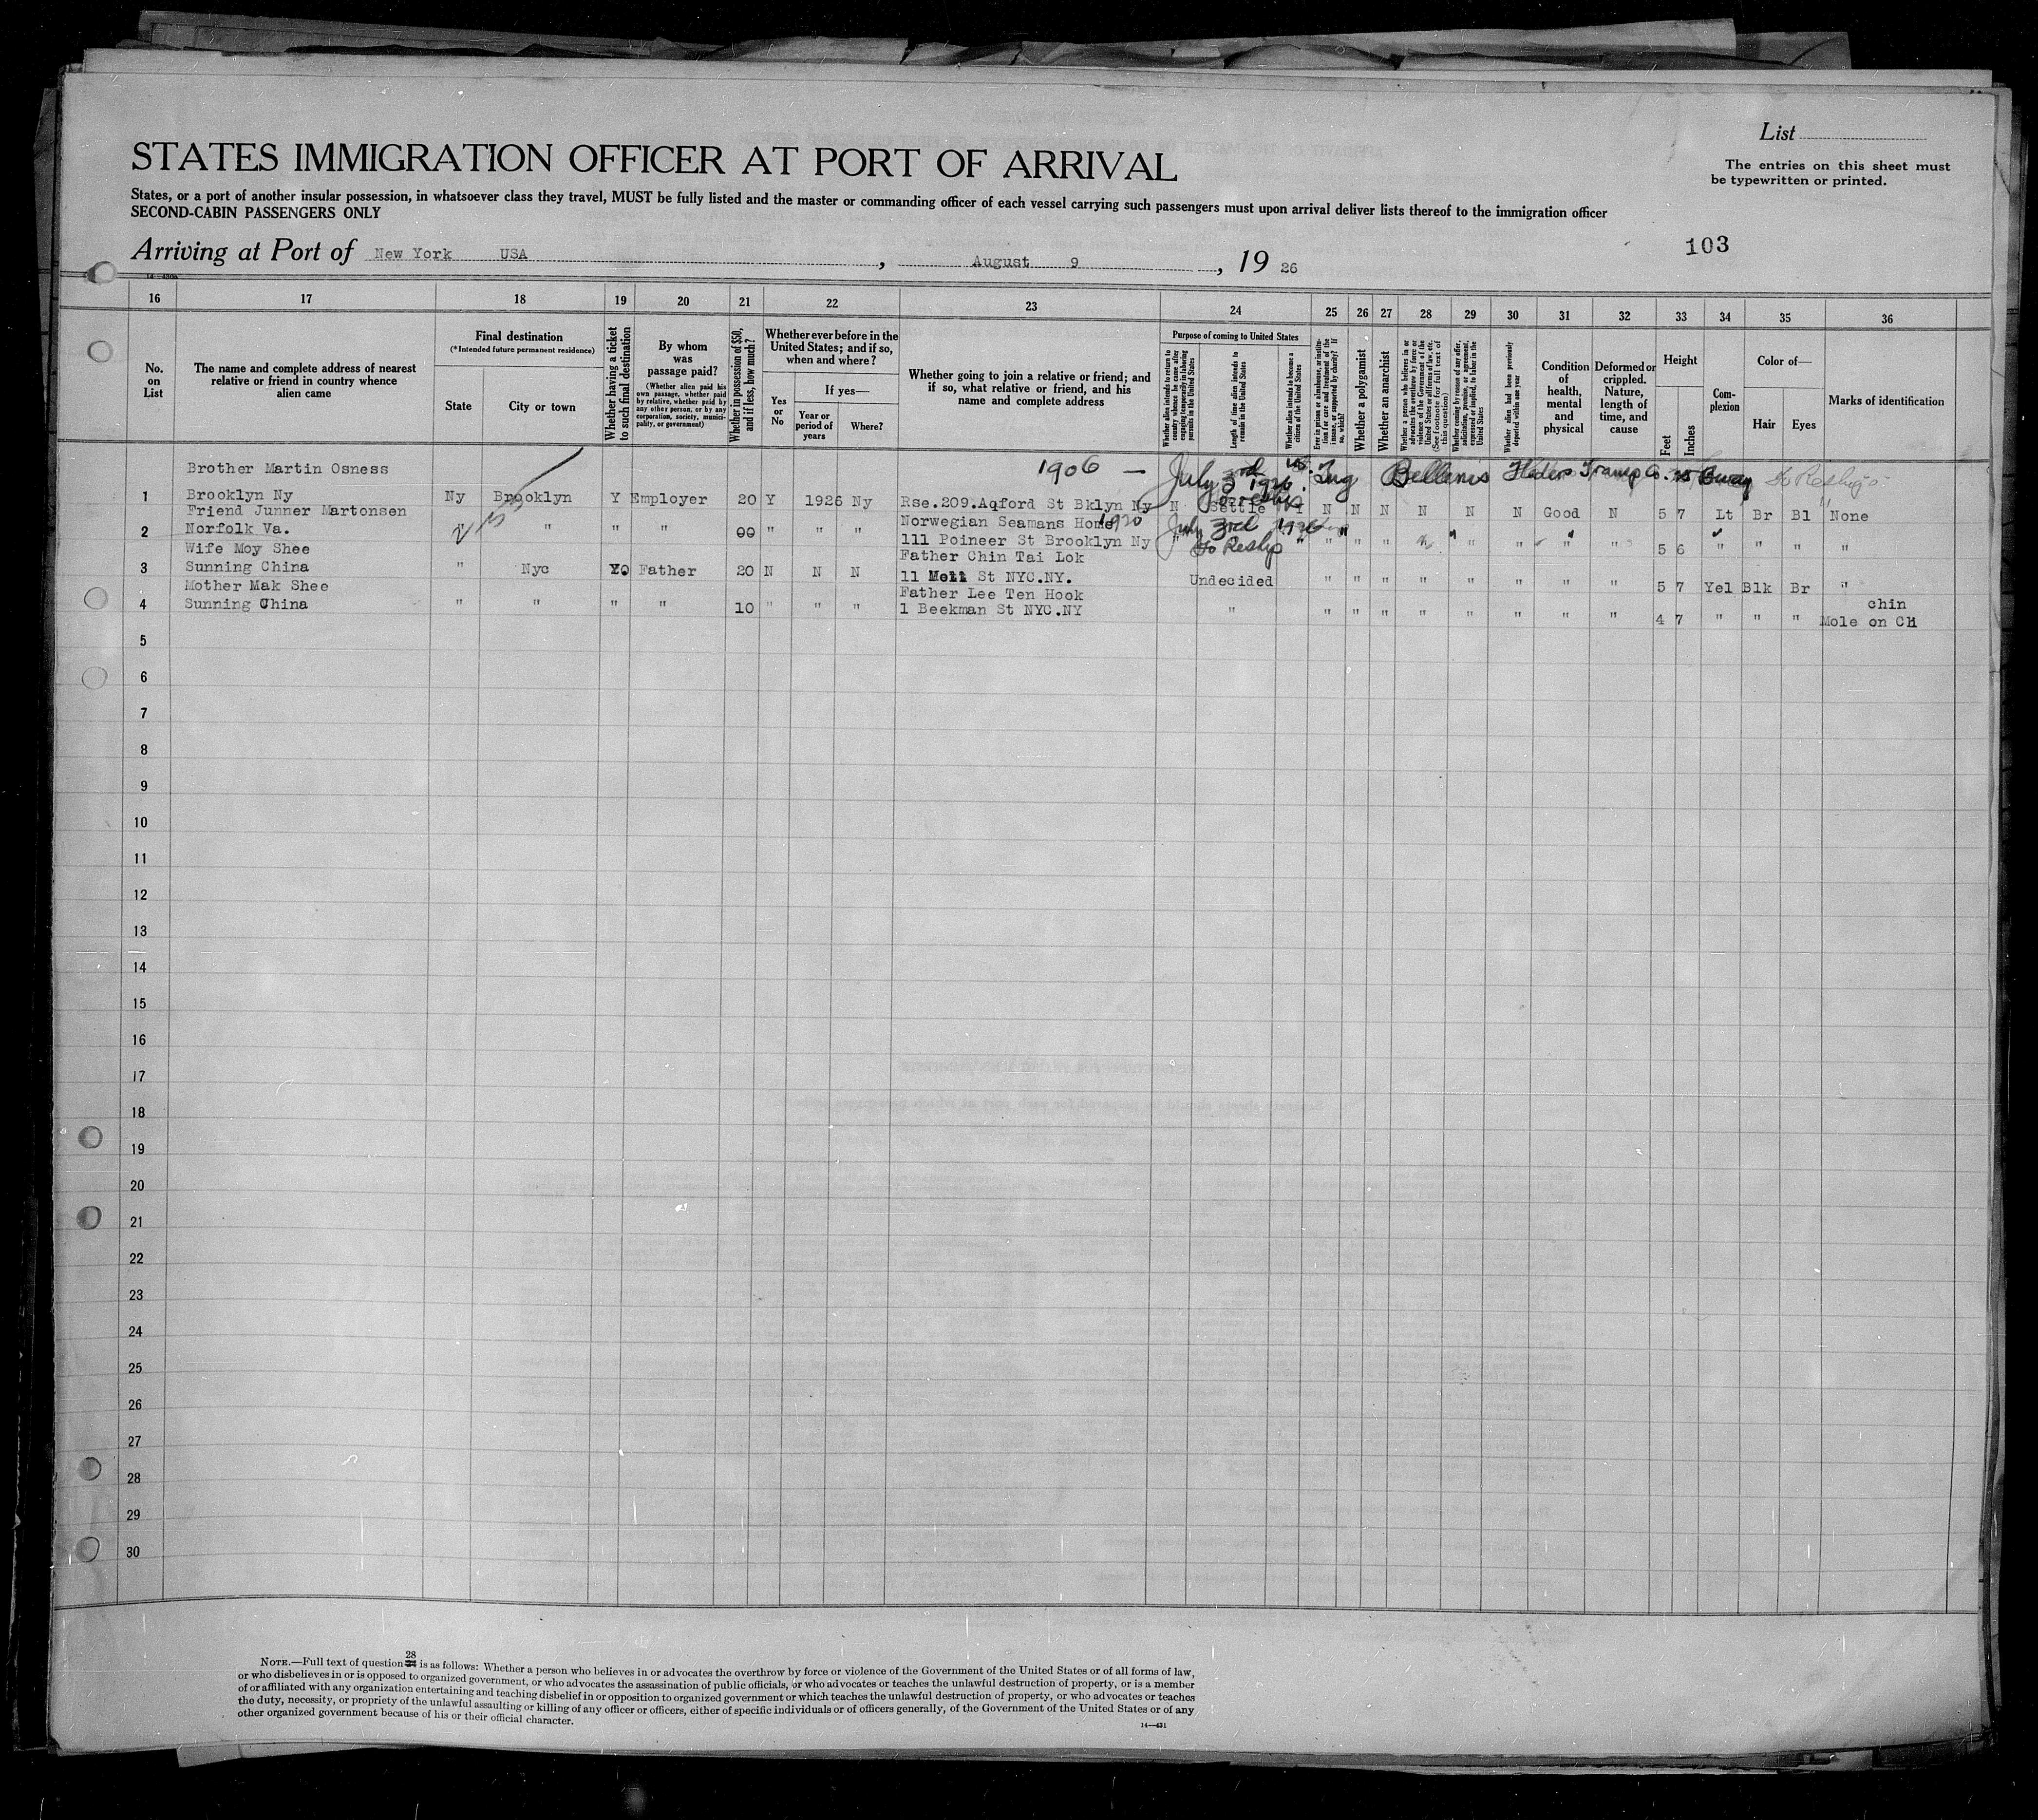 List
STATES IMMIGRATION OFFICER AT PORT OF ARRIVAL
The entries on this sheet must
be typewritten or printed.
States, or a port of another insular possession, in whatsoever class they travel, MUST be fully listed and the master or commanding officer of each vessel carrying such passengers must upon arrival deliver lists thereof to the immigration officer
SECOND-CABIN PASSENGERS ONLY
103
Arriving at Port of New York USA, August 9, 19 26
16 17 18 19 20 21 22 23 24 25 26 27 28 29 30 31 32 33 34 35 36
No. on List
The name and complete address of nearest relative or friend in country whence alien came
Final destination
(*Intended future permanent residence)
State
City or town
Whether having a ticket to such final destination
By whom was passage paid?
(Whether alien paid his own passage, whether paid by relative, whether paid by any other person, or by any corporation, society, municipality, or government)
Whether in possession of $50, and if less, how much?
Whether ever before in the United States; and if so, when and where?
Yes or No
If yes—
Year or period of years
Where?
Whether going to join a relative or friend; and if so, what relative or friend, and his name and complete address
Purpose of coming to United States
Whether alien intends to return to country whence he came after engaging temporarily in laboring pursuits in the United States
Length of time alien intends to remain in the United States
Whether alien intends to become a citizen of the United States
Ever in prison or almshouse, or institution for care and treatment of the insane, or supported by charity? If so, which?
Whether a polygamist
Whether an anarchist
Whether a person who believes in or advocates the overthrow by force or violence of the Government of the United States or all forms of law, etc. (See footnote for full text of this question)
Whether coming by reason of any offer, solicitation, promise, or agreement, expressed or implied, to labor in the United States
Whether alien had been previously deported within one year
Condition of health, mental and physical
Deformed or crippled. Nature, length of time, and cause
Height
Feet
Inches
Complexion
Color of—
Hair
Eyes
Marks of identification
Brother Martin Osness 1906 — July 3rd 1926
1 Brooklyn Ny Ny Brooklyn Y Employer 20 Y 1926 Ny Rse.209.Aqford St Bklyn Ny N Settle N N N N N N Good N 5 7 Lt Br Bl None
Friend Junner Martonsen Norwegian Seamans Home 1920 July 3rd 1926
2 Norfolk Va. " " " " 00 " " " 111 Poineer St Brooklyn Ny " To Reship " " " " " " " " 5 6 " " " "
Wife Moy Shee Father Chin Tai Lok
3 Sunning China " Nyc Father 20 N N N 11 Mott St NYC.NY. Undecided " " " " " " " " 5 7 Yel Blk Br "
Mother Mak Shee Father Lee Ten Hook chin
4 Sunning China " " " " 10 " " " 1 Beekman St NYC.NY " " " " " " " " " 4 7 " " " Mole on
5
6
7
8
9
10
11
12
13
14
15
16
17
18
19
20
21
22
23
24
25
26
27
28
29
30
28
NOTE.—Full text of question is as follows: Whether a person who believes in or advocates the overthrow by force or violence of the Government of the United States or of all forms of law,
or who disbelieves in or is opposed to organized government, or who advocates the assassination of public officials, or who advocates or teaches the unlawful destruction of property, or is a member
of or affiliated with any organization entertaining and teaching disbelief in or opposition to organized government or which teaches the unlawful destruction of property, or who advocates or teaches
the duty, necessity, or propriety of the unlawful assaulting or killing of any officer or officers, either of specific individuals or of officers generally, of the Government of the United States or of any
other organized government because of his or their official character.
14—431